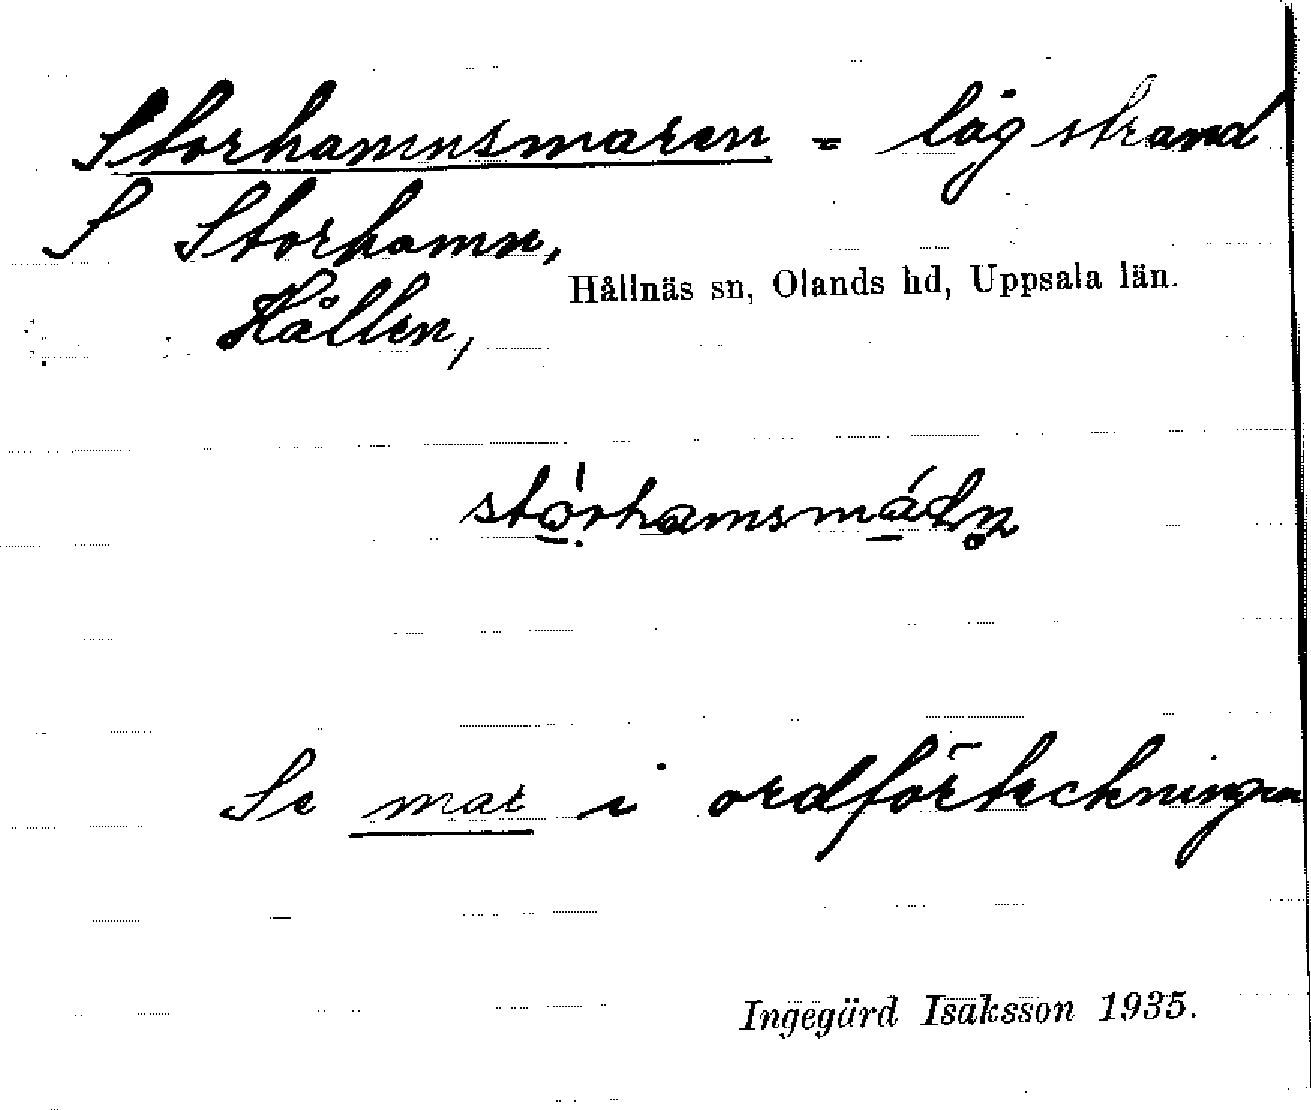 Storhamnsmaren = låg strand
S Storhamn,
Hållen, Hållnäs sn, Olands hd, Uppsala län.
Se mar i ordförteckningen
Ingegärd Isaksson 1935.